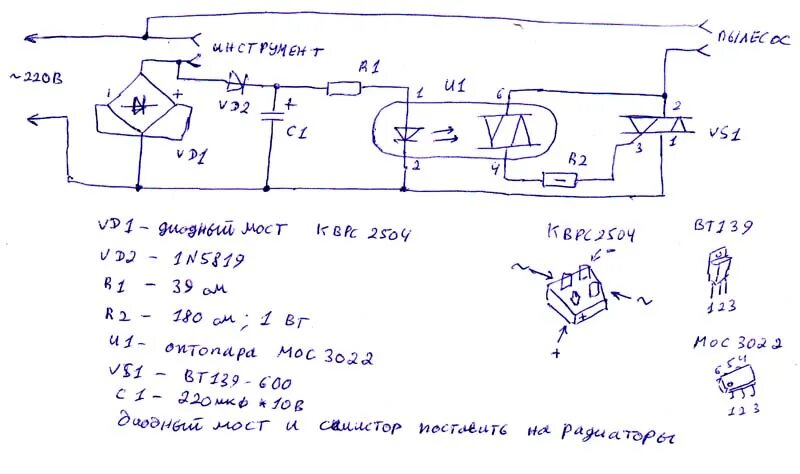 ИНСТРУМЕНТ
ПЫЛЕСОС
~220В
VD1
VD2
C1
R1
U1
1
2
6
4
R2
2
3
1
VS1
VD1 - диодный мост КВРС 2504
VD2 - 1N5819
R1 - 39 ом
R2 - 180 ом; 1 Вт
U1 - оптопара МОС 3022
VS1 - ВТ139-600
С1 - 220мкф * 10В
Диодный мост и симистор поставить на радиаторы
КВРС2504
~
-
~
+
ВТ139
1 2 3
МОС 3022
6 5 4
1 2 3